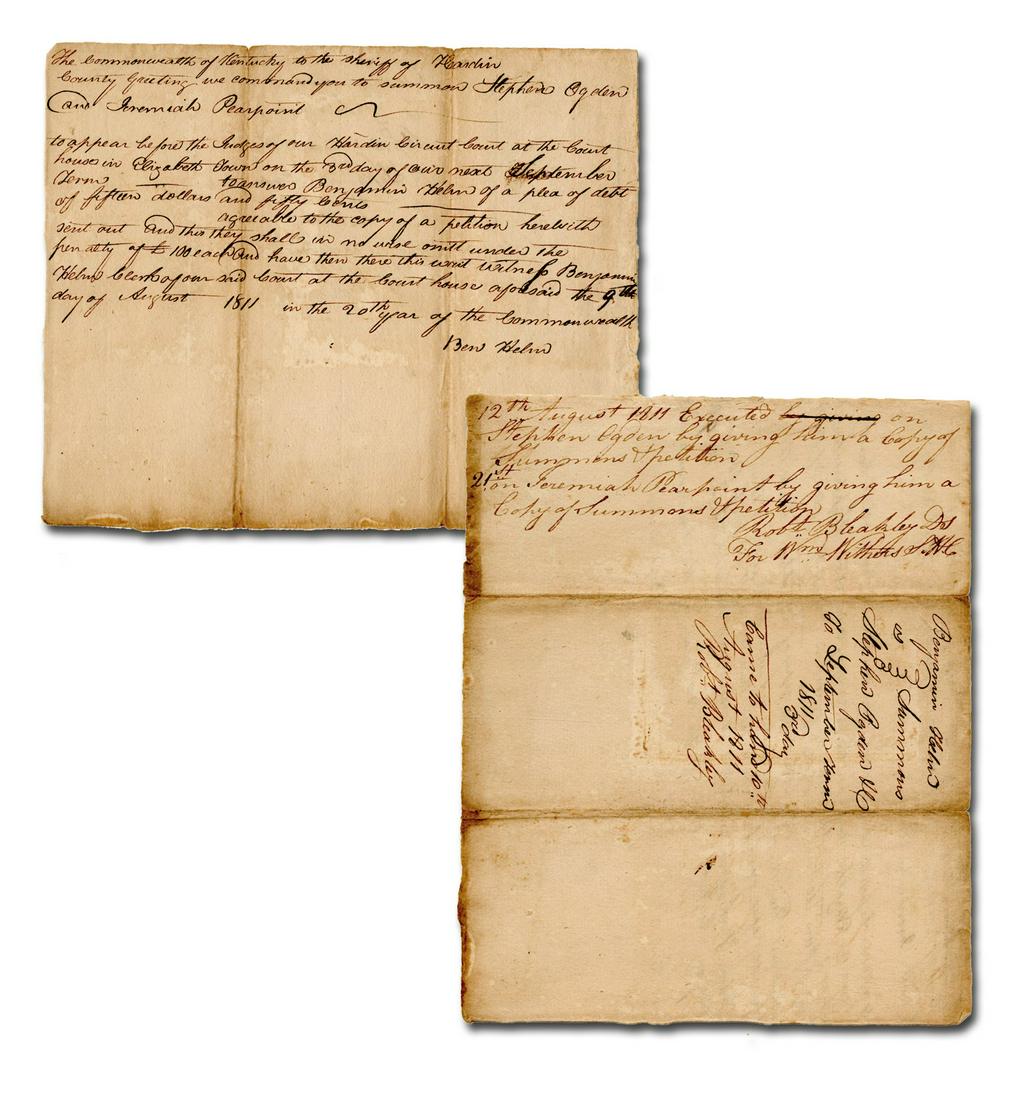 The Commonwealth of Kentucky to the Sheriff of Hardin
County Greeting we command you to summon Stephen Ogden
and Jeremiah Pearpoint
to appear before the Judges of our Hardin Circuit Court at the Court
house in Elizabeth Town on the 3rd day of our next September
Term to answer Benjamin Helm of a plea of debt
of fifteen dollars and fifty Cents
agreeable to the copy of a petition herewith
sent out and this they shall in no wise omitt under the
penalty of £ 100 each and have then there this writ Witness Benjamin
Helm Clerk of our said Court at the Court house aforesaid the 9th
day of August 1811 in the 20th year of the Commonwealth
Ben Helm
12th August 1811 Executed by giving on
Stephen Ogden by giving him a Copy of
Summons & petition
21st on Jeremiah Pearpoint by giving him a
Copy of Summons & petition
Robt Bleakley Ds
For Wm Withers S.H.C
Benjamin Helm
vs } Summons
Stephen Ogden &c
To September Term
1811
3rd day
Came to hand 10th
August 1811
Robt Bleakley